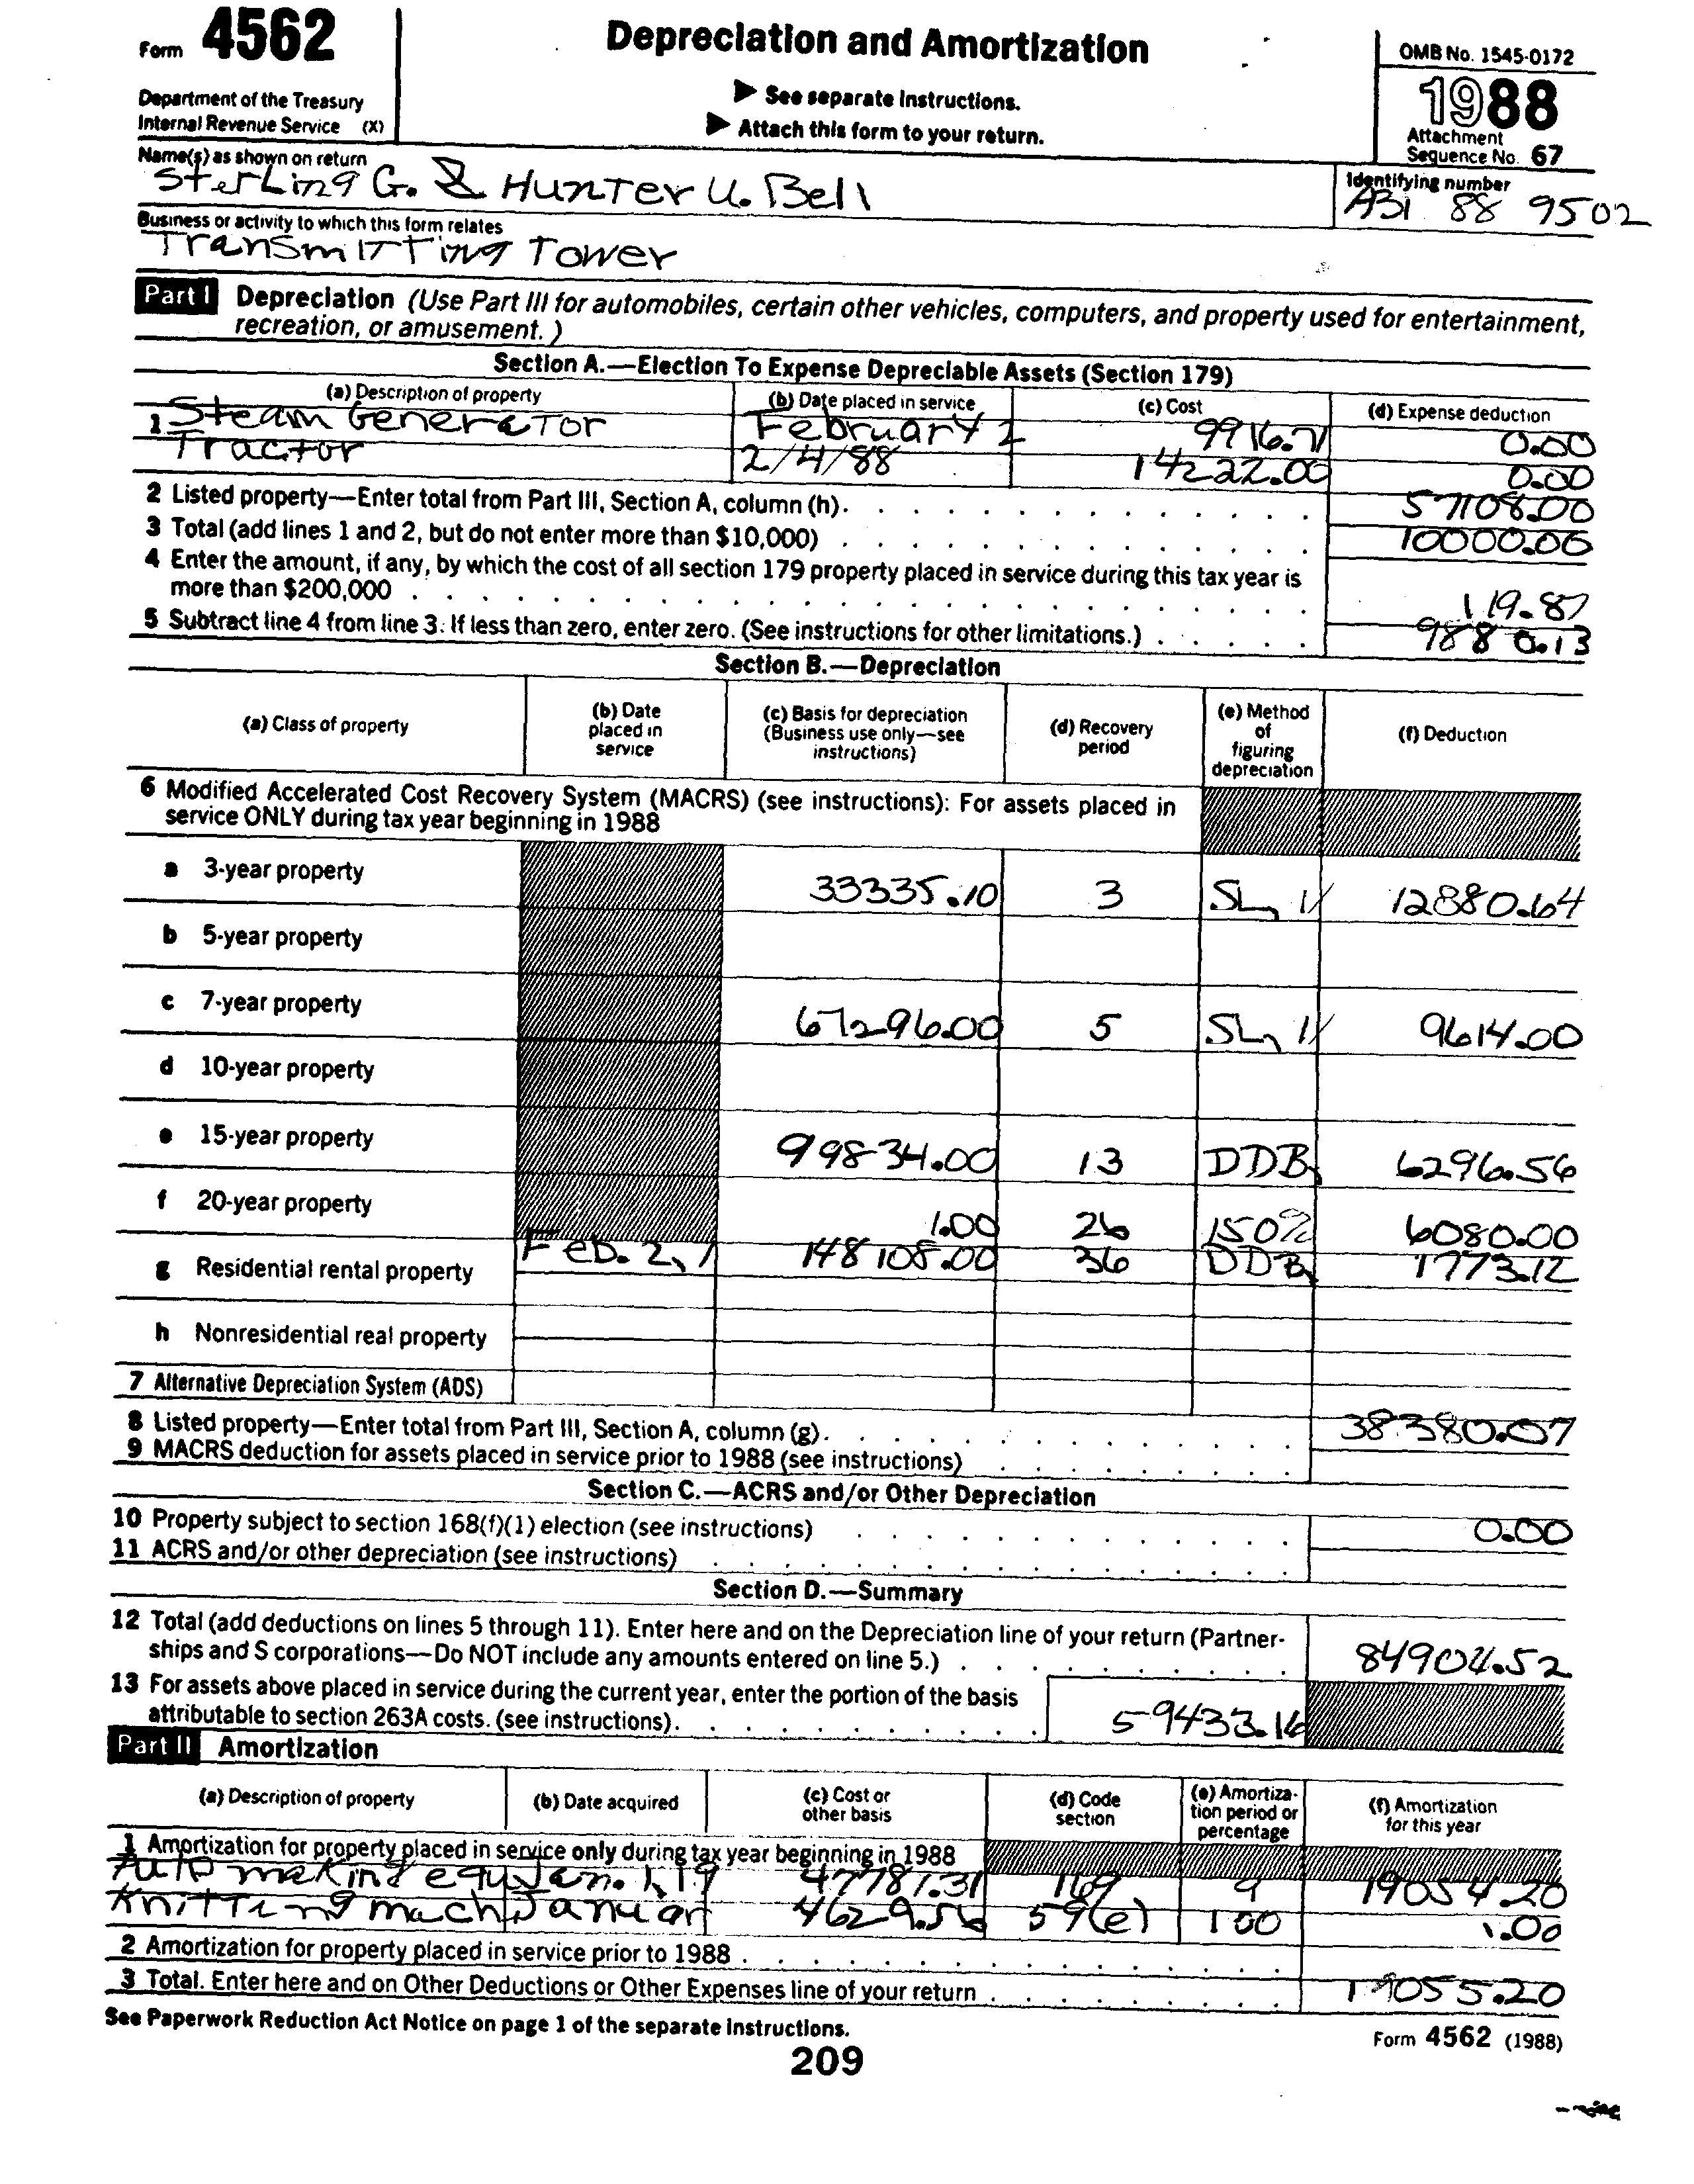 Form 4562
Department of the Treasury
Internal Revenue Service (X)
Depreciation and Amortization
▶ See separate Instructions.
▶ Attach this form to your return.
OMB No. 1545-0172
1988
Attachment
Sequence No. 67
Name(s) as shown on return
SterLing G. & HUNTer U. Bell
Identifying number
AB1 88 9502
Business or activity to which this form relates
TransmiTTing Tower
Part I Depreciation (Use Part III for automobiles, certain other vehicles, computers, and property used for entertainment,
recreation, or amusement.)
Section A.—Election To Expense Depreciable Assets (Section 179)
(a) Description of property (b) Date placed in service (c) Cost (d) Expense deduction
1 Steam Generator February 2 9916.71 0.00
Tractor 2/4/88 14222.00 0.00
2 Listed property—Enter total from Part III, Section A, column (h). 57108.00
3 Total (add lines 1 and 2, but do not enter more than $10,000) 10000.00
4 Enter the amount, if any, by which the cost of all section 179 property placed in service during this tax year is
more than $200,000 119.87
5 Subtract line 4 from line 3. If less than zero, enter zero. (See instructions for other limitations.) 9880.13
Section B.—Depreciation
(a) Class of property (b) Date placed in service (c) Basis for depreciation (Business use only—see instructions) (d) Recovery period (e) Method of figuring depreciation (f) Deduction
6 Modified Accelerated Cost Recovery System (MACRS) (see instructions): For assets placed in
service ONLY during tax year beginning in 1988
a 3-year property 33335.10 3 SL, 12880.64
b 5-year property
c 7-year property 67296.00 5 SL, 9614.00
d 10-year property
e 15-year property 99834.00 13 DDB, 6296.56
f 20-year property 1.00 26 150% 6080.00
g Residential rental property Feb. 2, 1 148108.00 36 DDB, 1773.12
h Nonresidential real property
7 Alternative Depreciation System (ADS)
8 Listed property—Enter total from Part III, Section A, column (g). 38380.07
9 MACRS deduction for assets placed in service prior to 1988 (see instructions)
Section C.—ACRS and/or Other Depreciation
10 Property subject to section 168(f)(1) election (see instructions) 0.00
11 ACRS and/or other depreciation (see instructions)
Section D.—Summary
12 Total (add deductions on lines 5 through 11). Enter here and on the Depreciation line of your return (Partner-
ships and S corporations—Do NOT include any amounts entered on line 5.) 84904.52
13 For assets above placed in service during the current year, enter the portion of the basis
attributable to section 263A costs. (see instructions). 59433.16
Part II Amortization
(a) Description of property (b) Date acquired (c) Cost or other basis (d) Code section (e) Amortiza-tion period or percentage (f) Amortization for this year
1 Amortization for property placed in service only during tax year beginning in 1988
Auto making equ Jan. 1, 19 47781.31 169 9 19054.20
KniTTing mach Januar 4629.56 59(e) 100 1.00
2 Amortization for property placed in service prior to 1988
3 Total. Enter here and on Other Deductions or Other Expenses line of your return 19055.20
See Paperwork Reduction Act Notice on page 1 of the separate Instructions.
Form 4562 (1988)
209